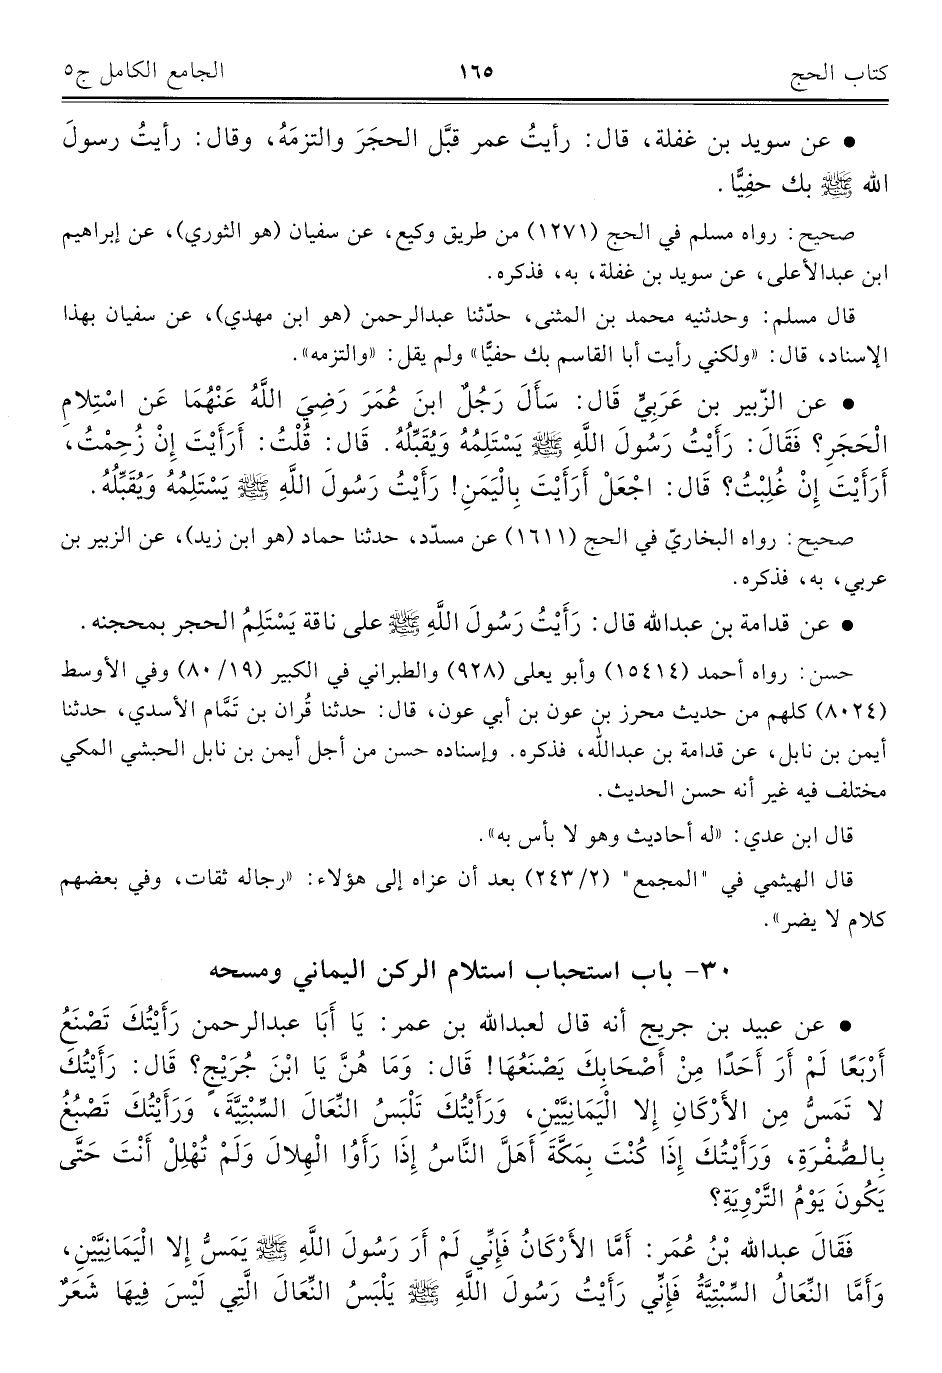 كتاب الحج ١٦٥ الجامع الكامل ج٥
• عن سويد بن غفلة، قال: رأيتُ عمر قبَّل الحجَرَ والتزمَهُ، وقال: رأيتُ رسولَ
الله ﷺ بك حفيًّا.
صحيح: رواه مسلم في الحج (١٢٧١) من طريق وكيع، عن سفيان (هو الثوري)، عن إبراهيم
ابن عبدالأعلى، عن سويد بن غفلة، به، فذكره.
قال مسلم: وحدثنيه محمد بن المثنى، حدّثنا عبدالرحمن (هو ابن مهدي)، عن سفيان بهذا
الإسناد، قال: «ولكني رأيت أبا القاسم بك حفيًّا» ولم يقل: «والتزمه».
• عن الزّبير بن عَرَبِيٍّ قَال: سَأَلَ رَجُلٌ ابنَ عُمَرَ رَضِيَ اللَّهُ عَنْهُمَا عَن اسْتِلامِ
الْحَجَرِ؟ فَقَالَ: رَأَيْتُ رَسُولَ اللَّهِ ﷺ يَسْتَلِمُهُ وَيُقَبِّلُهُ. قَال: قُلْتُ: أَرَأَيْتَ إِنْ زُحِمْتُ،
أَرَأَيْتَ إِنْ غُلِبْتُ؟ قَال: اجْعَلْ أَرَأَيْتَ بِالْيَمَنِ! رَأَيْتُ رَسُولَ اللَّهِ ﷺ يَسْتَلِمُهُ وَيُقَبِّلُهُ.
صحيح: رواه البخاريّ في الحج (١٦١١) عن مسدّد، حدثنا حماد (هو ابن زيد)، عن الزبير بن
عربي، به، فذكره.
• عن قدامة بن عبدالله قال: رَأَيْتُ رَسُولَ اللَّهِ ﷺ على ناقة يَسْتَلِمُ الحجر بمحجنه.
حسن: رواه أحمد (١٥٤١٤) وأبو يعلى (٩٢٨) والطبراني في الكبير (١٩/ ٨٠) وفي الأوسط
(٨٠٢٤) كلهم من حديث محرز بن عون بن أبي عون، قال: حدثنا قُران بن تَمَّام الأسدي، حدثنا
أيمن بن نابل، عن قدامة بن عبدالله، فذكره. وإسناده حسن من أجل أيمن بن نابل الحبشي المكي
مختلف فيه غير أنه حسن الحديث.
قال ابن عدي: «له أحاديث وهو لا بأس به».
قال الهيثمي في "المجمع" (٢/ ٢٤٣) بعد أن عزاه إلى هؤلاء: «رجاله ثقات، وفي بعضهم
كلام لا يضر».
٣٠- باب استحباب استلام الركن اليماني ومسحه
• عن عبيد بن جريج أنه قال لعبدالله بن عمر: يَا أَبَا عبدالرحمن رَأَيْتُكَ تَصْنَعُ
أَرْبَعًا لَمْ أَرَ أَحَدًا مِنْ أَصْحَابِكَ يَصْنَعُهَا! قَال: وَمَا هُنَّ يَا ابْنَ جُرَيْجٍ؟ قَال: رَأَيْتُكَ
لا تَمَسُّ مِن الأَرْكَانِ إِلا الْيَمَانِيَّيْنِ، وَرَأَيْتُكَ تَلْبَسُ النِّعَالَ السِّبْتِيَّةَ، وَرَأَيْتُكَ تَصْبُغُ
بِالصُّفْرَةِ، وَرَأَيْتُكَ إِذَا كُنْتَ بِمَكَّةَ أَهَلَّ النَّاسُ إِذَا رَأَوُا الْهِلالَ وَلَمْ تُهْلِلْ أَنْتَ حَتَّى
يَكُونَ يَوْمُ التَّرْوِيَةِ؟
فَقَالَ عبدالله بْنُ عُمَر: أَمَّا الأَرْكَانُ فَإِنِّي لَمْ أَر رَسُولَ اللَّهِ ﷺ يَمَسُّ إِلا الْيَمَانِيَّيْنِ،
وَأَمَّا النِّعَالُ السِّبْتِيَّةُ فَإِنِّي رَأَيْتُ رَسُولَ اللَّهِ ﷺ يَلْبَسُ النِّعَالَ الَّتِي لَيْسَ فِيهَا شَعَرٌ